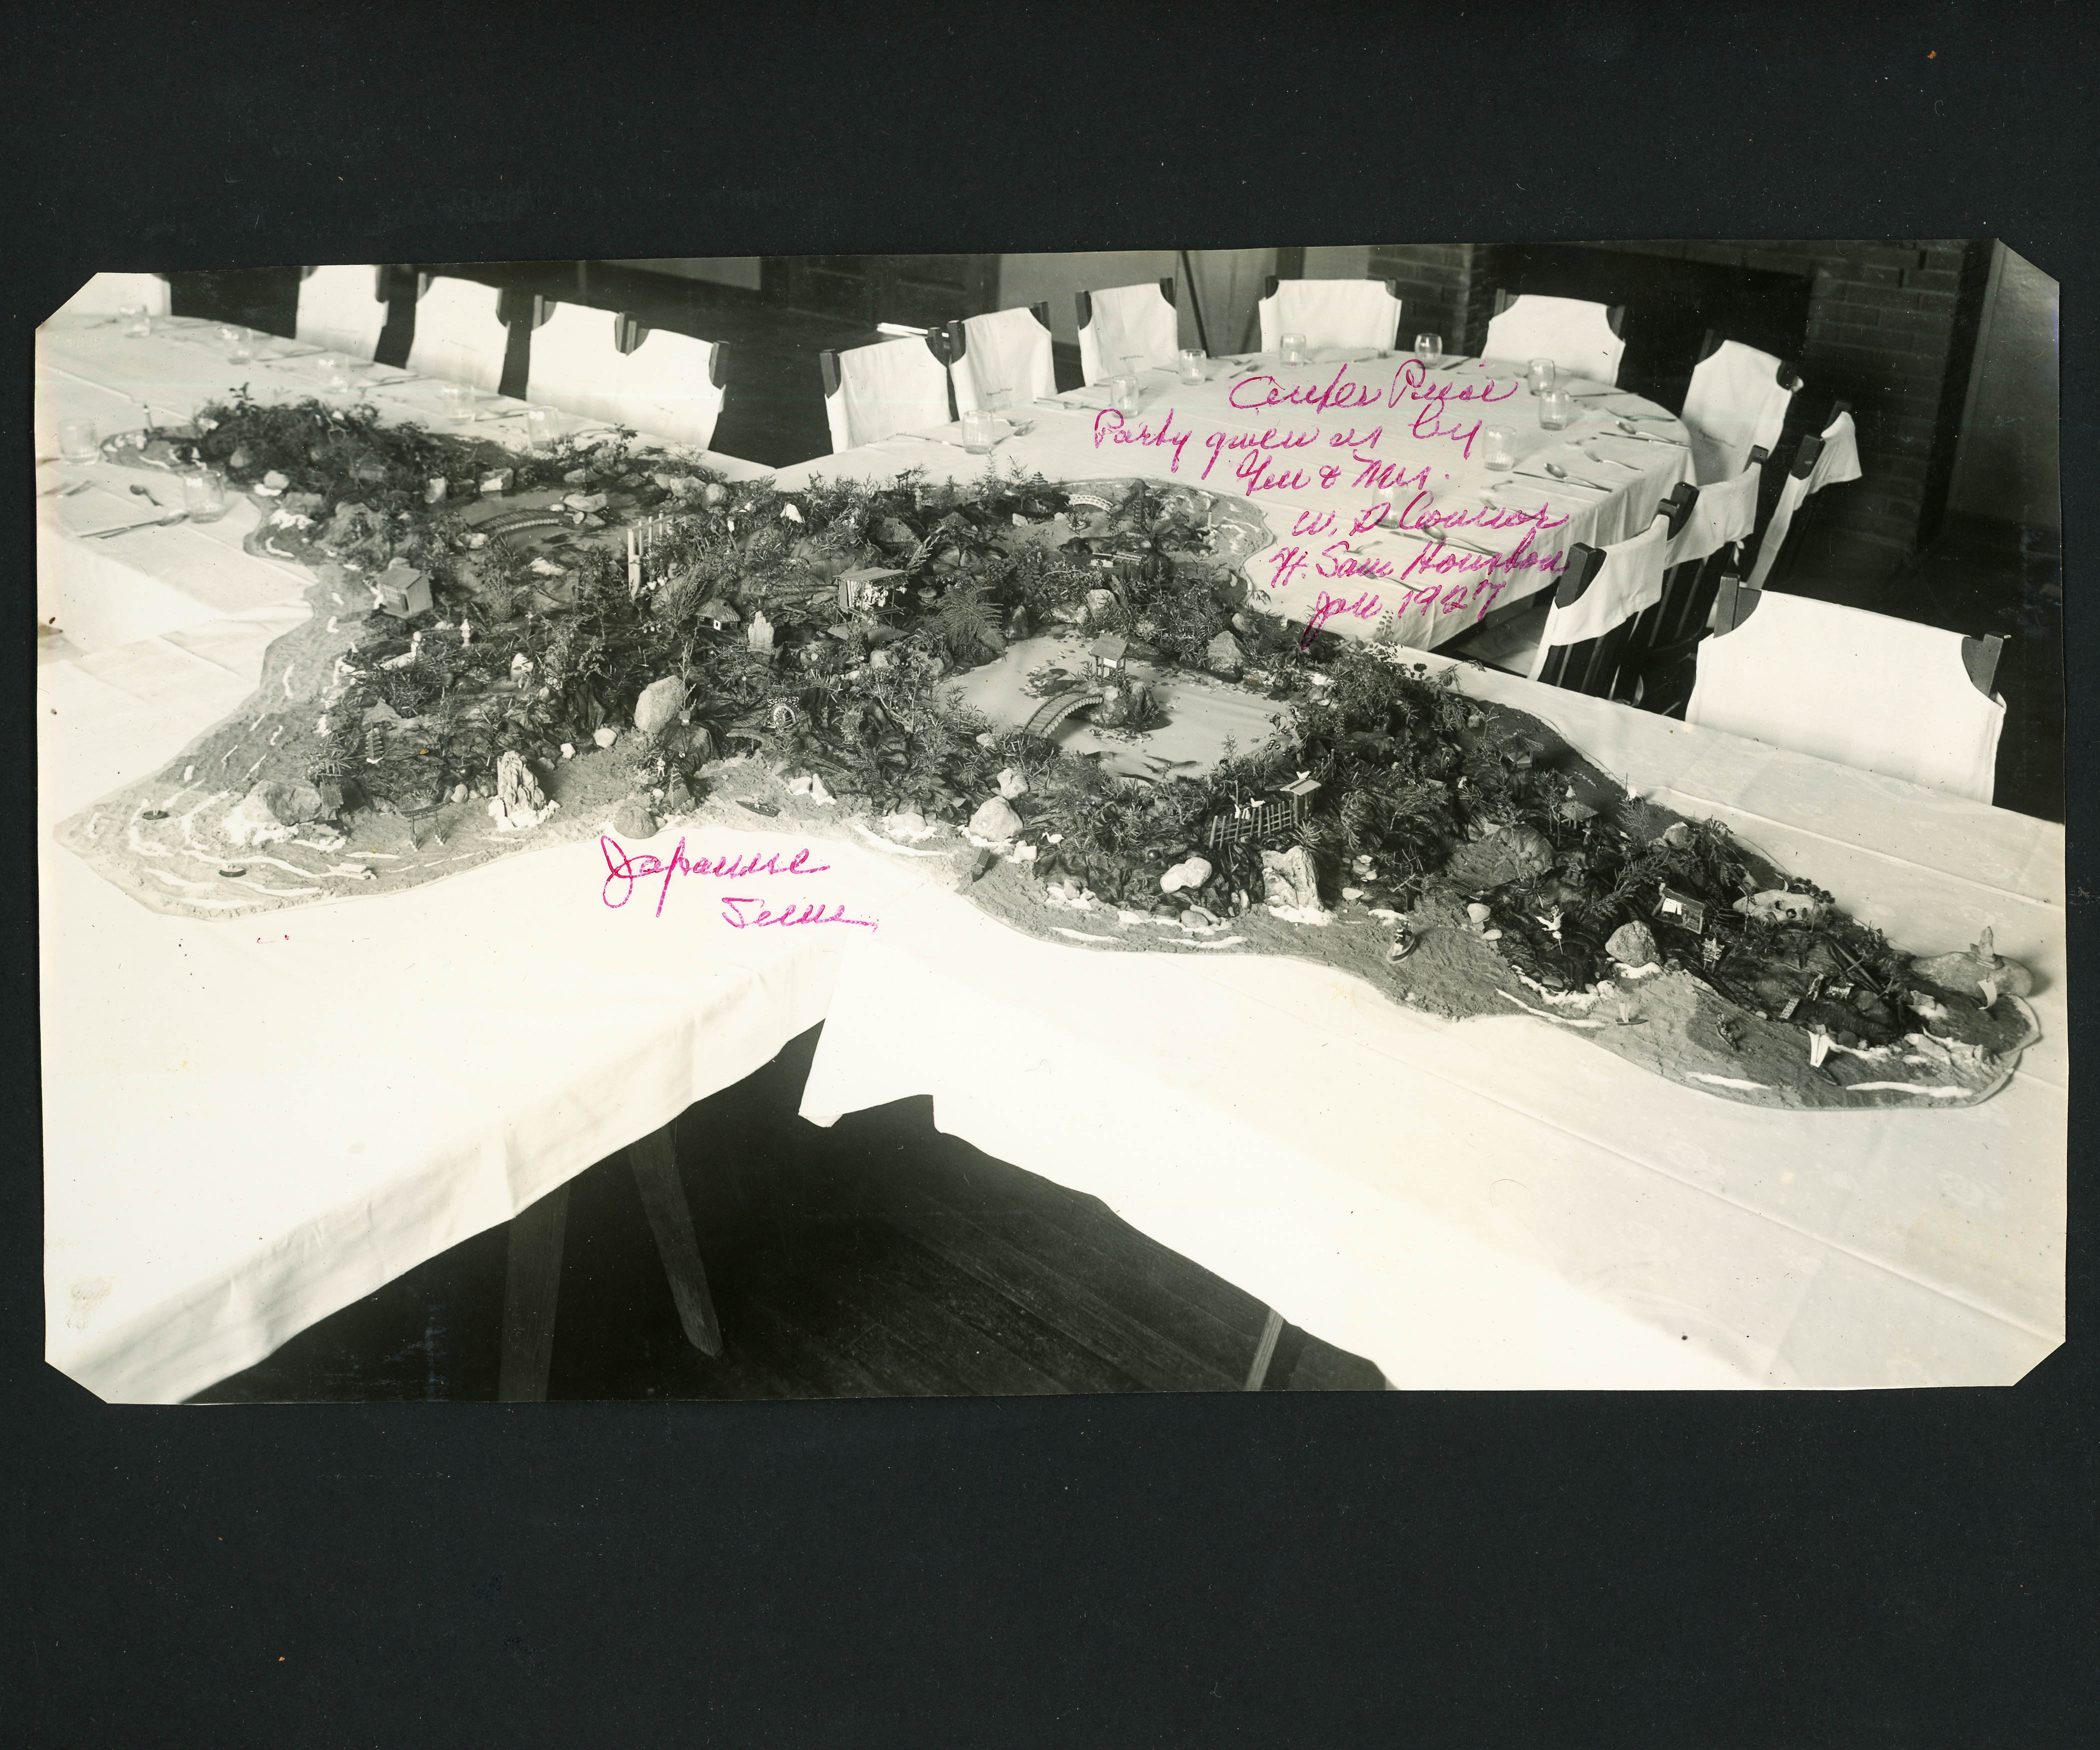 Center Piece
Party given us by
Gen & Mrs.
W. D Connor
Ft. Sam Houston
Jan. 1927
Japanese
Scene